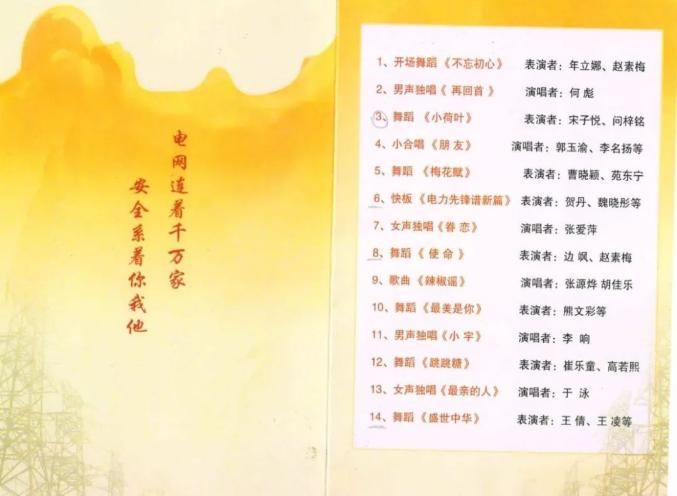 电网连着千万家
安全系着你我他
1、开场舞蹈《不忘初心》 表演者：年立娜、赵素梅
2、男声独唱《再回首》 演唱者：何 彪
3、舞蹈《小荷叶》 表演者：宋子悦、问梓铭
4、小合唱《朋 友》 演唱者：郭玉渝、李名扬等
5、舞蹈《梅花赋》 表演者：曹晓颖、苑东宁
6、快板《电力先锋谱新篇》 表演者：贺丹、魏晓彤等
7、女声独唱《眷 恋》 演唱者：张爱萍
8、舞蹈《 使 命 》 表演者：边 飒、赵素梅
9、歌曲《辣椒谣》 演唱者：张源烨 胡佳乐
10、舞蹈《最美是你》 表演者：熊文彩等
11、男声独唱《小 宇》 演唱者：李 响
12、舞蹈《跳跳糖》 表演者：崔乐童、高若熙
13、女声独唱《最亲的人》 演唱者：于 泳
14、舞蹈《盛世中华》 表演者：王 倩、王 凌等